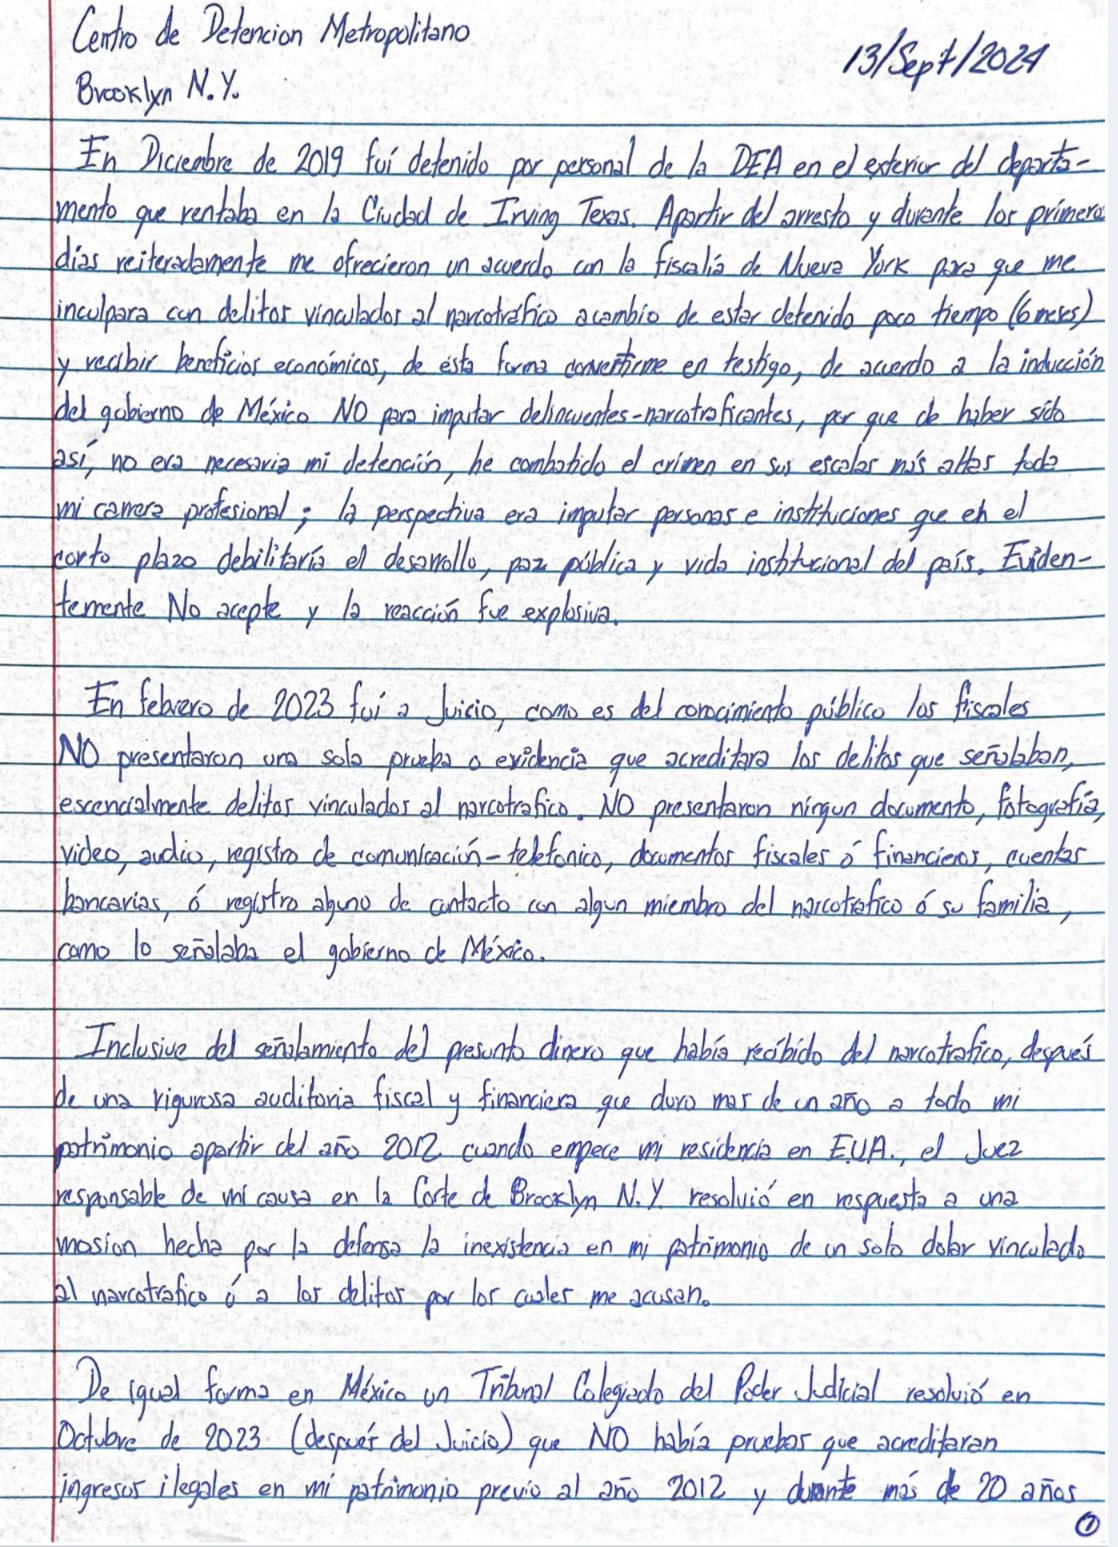 Centro de Detencion Metropolitano
13/Sept/2024
Brooklyn N.Y.
En Diciembre de 2019 fuí detenido por personal de la DEA en el exterior del departa-
mento que rentaba en la Ciudad de Irving Texas. Apartir del arresto y durante los primeros
días reiteradamente me ofrecieron un acuerdo con la fiscalía de Nueva York para que me
inculpara con delitos vinculados al narcotráfico acambio de estar detenido poco tiempo (6 meses)
y recibir beneficios económicos, de ésta forma convertirme en testigo, de acuerdo a la inducción
del gobierno de México NO para imputar delincuentes-narcotraficantes, por que de haber sido
así, no era necesaria mi detención, he combatido el crimen en sus escalas más altas toda
mi carrera profesional; la perspectiva era imputar personas e instituciones que en el
corto plazo debilitaría el desarrollo, paz pública y vida institucional del país. Eviden-
temente No acepte y la reacción fue explosiva.
En febrero de 2023 fuí a Juicio, como es del conocimiento público los fiscales
NO presentaron una sola prueba o evidencia que acreditara los delitos que señalaban,
escencialmente delitos vinculados al narcotrafico. NO presentaron ningun documento, fotografía,
video, audio, registro de comunicación-telefonico, documentos fiscales ó financieros, cuentas
bancarias, ó registro alguno de contacto con algun miembro del narcotrafico ó su familia,
como lo señalaba el gobierno de México.
Inclusive del señalamiento del presunto dinero que había recibido del narcotrafico, después
de una rigurosa auditoria fiscal y financiera que duro mas de un año a todo mi
patrimonio apartir del año 2012 cuando empece mi residencia en E.U.A., el Juez
responsable de mi causa en la Corte de Brooklyn N.Y. resolvió en respuesta a una
mosion hecha por la defensa la inexistencia en mi patrimonio de un solo dolar vinculado
al narcotrafico ó a los delitos por los cuales me acusan.
De igual forma en México un Tribunal Colegiado del Poder Judicial resolvió en
Octubre de 2023 (después del Juicio) que NO había pruebas que acreditaran
ingresos ilegales en mi patrimonio previo al año 2012 y durante más de 20 años
1